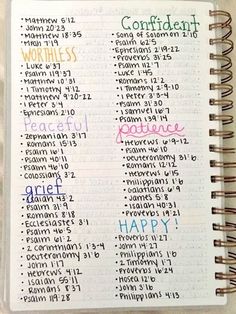 • Matthew 6:12
• John 20:23
• Matthew 18:35
• Micah 7:19
WORTHLESS
• Luke 6:37
• Psalm 119:37
• Matthew 10:31
• 1 Timothy 4:12
• 1 Peter 3:4
• Ephesians 2:10
Peaceful
• Zephaniah 3:17
• Romans 15:13
• Psalm 16:1
• Psalm 46:10
• Colossians 3:2
grief
• Isaiah 43:2
• Psalm 31:9
• Romans 8:18
• Ecclesiastes 3:1
• Psalm 46:5
• Psalm 61:2
• 2 Corinthians 1:3-4
• deuteronomy 31:6
• John 1:17
• Hebrews 4:12
• Isaiah 55:11
• Romans 8:37
• Psalm 119:28
Confident
• Song of Solomon 2:10
• Psalm 62:5
• Ephesians 2:19-22
• Proverbs 31:25
• Psalm 112:7
• Luke 1:45
• Romans 12:2
• 1 Timothy 2:9-10
• 1 Peter 3:3-4
• Psalm 31:30
• 1 Samuel 16:7
• Psalm 139:14
patience
• Hebrews 6:9-12
• Psalm 46:10
• deuteronomy 31:6
• Hebrews 11:1
• Philippians 1:6
• Galatians 6:9
• James 5:8
• Isaiah 40:31
• Proverbs 19:21
HAPPY!
• Proverbs 15:29
• John 14:27
• Philippians 1:6
• 2 Timothy 1:7
• Proverbs 16:24
• Hosea 12:6
• John 3:16
• Philippians 4:13